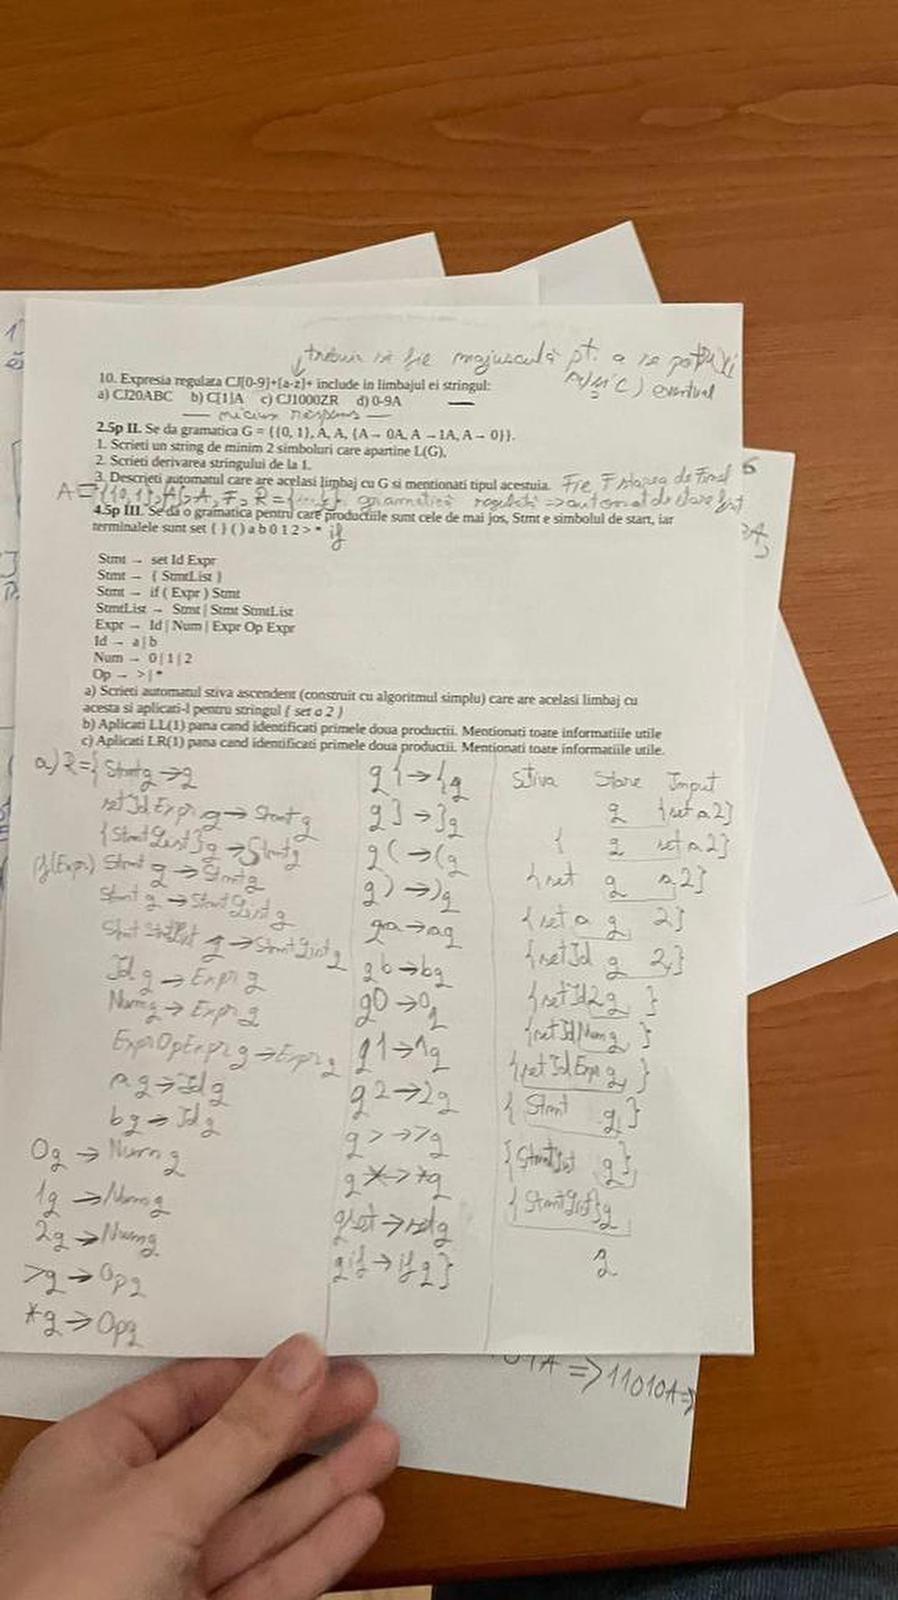 trebuie să fie majusculă pt. a se potrivi
10. Expresia regulata CJ[0-9]+[a-z]+ include in limbajul ei stringul:
eventual
a) CJ20ABC b) C[1]A c) CJ1000ZR d) 0-9A
— niciun răspuns —
2.5p II. Se da gramatica G = ({0, 1}, A, A, {A→ 0A, A →1A, A→ 0}).
1. Scrieti un string de minim 2 simboluri care apartine L(G).
2. Scrieti derivarea stringului de la 1.
3. Descrieti automatul care are acelasi limbaj cu G si mentionati tipul acestuia. Fie F starea de final
gramatică regulată => automat de stare finit
4.5p III. Se da o gramatica pentru care productiile sunt cele de mai jos, Stmt e simbolul de start, iar
terminalele sunt set { } ( ) a b 0 1 2 > * if
Stmt → set Id Expr
Stmt → { StmtList }
Stmt → if ( Expr ) Stmt
StmtList → Stmt | Stmt StmtList
Expr → Id | Num | Expr Op Expr
Id → a | b
Num → 0 | 1 | 2
Op → > | *
a) Scrieti automatul stiva ascendent (construit cu algoritmul simplu) care are acelasi limbaj cu
acesta si aplicati-l pentru stringul { set a 2 }
b) Aplicati LL(1) pana cand identificati primele doua productii. Mentionati toate informatiile utile
c) Aplicati LR(1) pana cand identificati primele doua productii. Mentionati toate informatiile utile.
a) R={ Stmt q → q
set Id Expr q → Stmt q
{StmtList} q → Stmt q
if(Expr) Stmt q → Stmt q
Stmt q → StmtList q
Stmt StmtList q → StmtList q
Id q → Expr q
Num q → Expr q
Expr Op Expr q → Expr q
a q → Id q
b q → Id q
0q → Num q
1q → Num q
2q → Num q
>q → Op q
*q → Op q
q{ → {q
q} → }q
q( → (q
q) → )q
qa → aq
qb → bq
q0 → 0q
q1 → 1q
q2 → 2q
q> → >q
q* → *q
qset → setq
qif → ifq}
Stiva Stare Input
q {set a 2}
{ q set a 2}
{set q a 2}
{set a q 2}
{set Id q 2}
{set Id 2 q }
{set Id Num q }
{set Id Expr q }
{ Stmt q }
{StmtList q }
{StmtList} q
q
=> 11010A =>